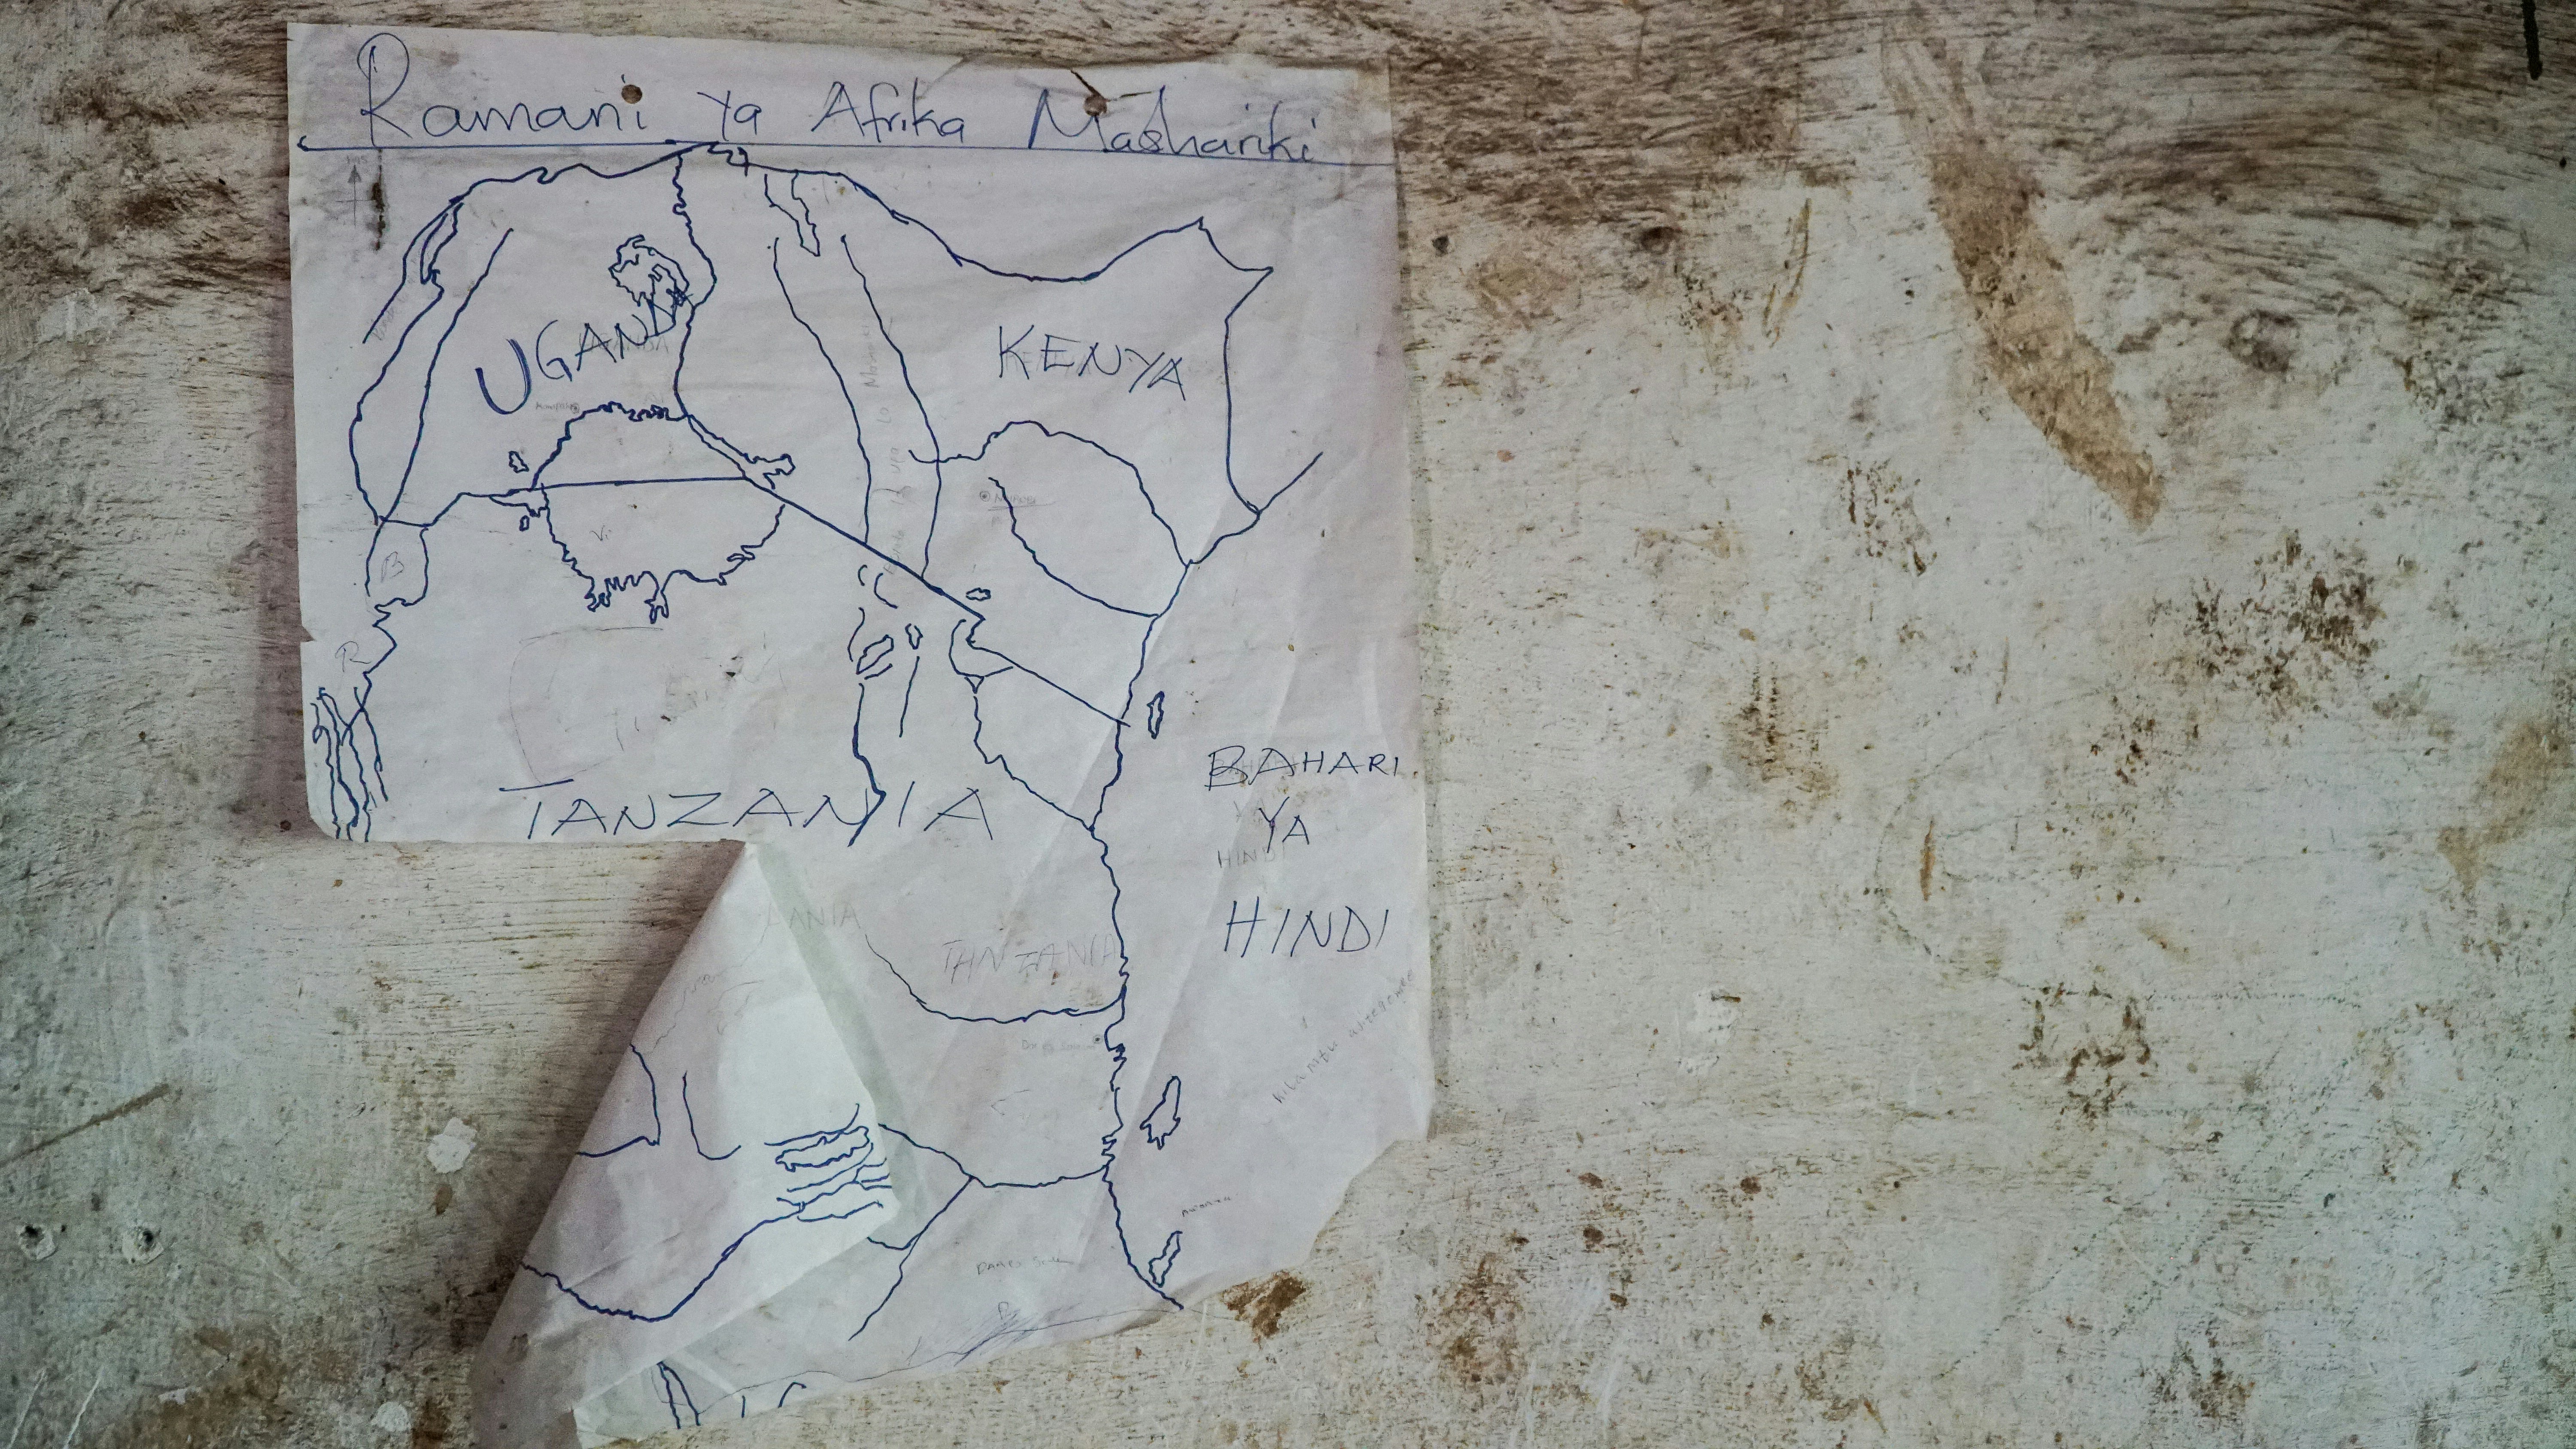 Ramani Ya Afrika Mashariki
UGANDA
KENYA
B
R
TANZANIA
BAHARI
YA
HINDI
HINDI
TANZANIA